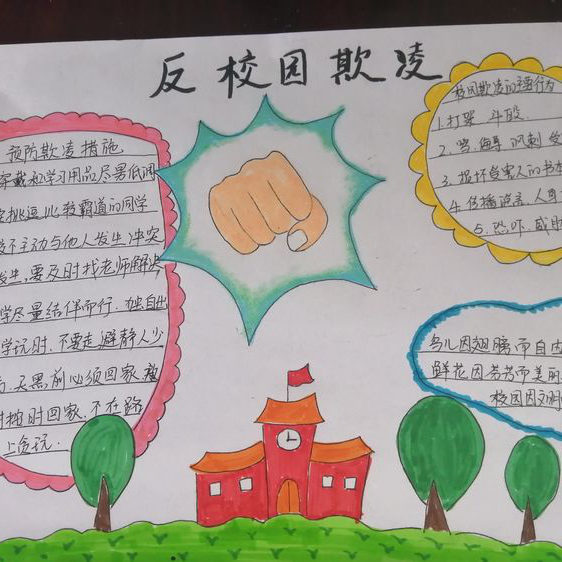 反校园欺凌
预防欺凌措施
穿戴和学习用品尽量低调
挑逗比较霸道的同学
不主动与他人发生冲突
发生,要及时找老师解决
学尽量结伴而行.独自出
学玩时.不要走避静人少
天黑前必须回家.
按时回家.不在路
上贪玩.
校园欺凌的主要行为
1.打架 斗殴.
2.辱骂 讽刺
3.损坏受害人的书本
4.传播谣言.人身
5.恐吓.威胁
鸟儿因翅膀而自由
鲜花因芬芳而美丽.
校园因文明